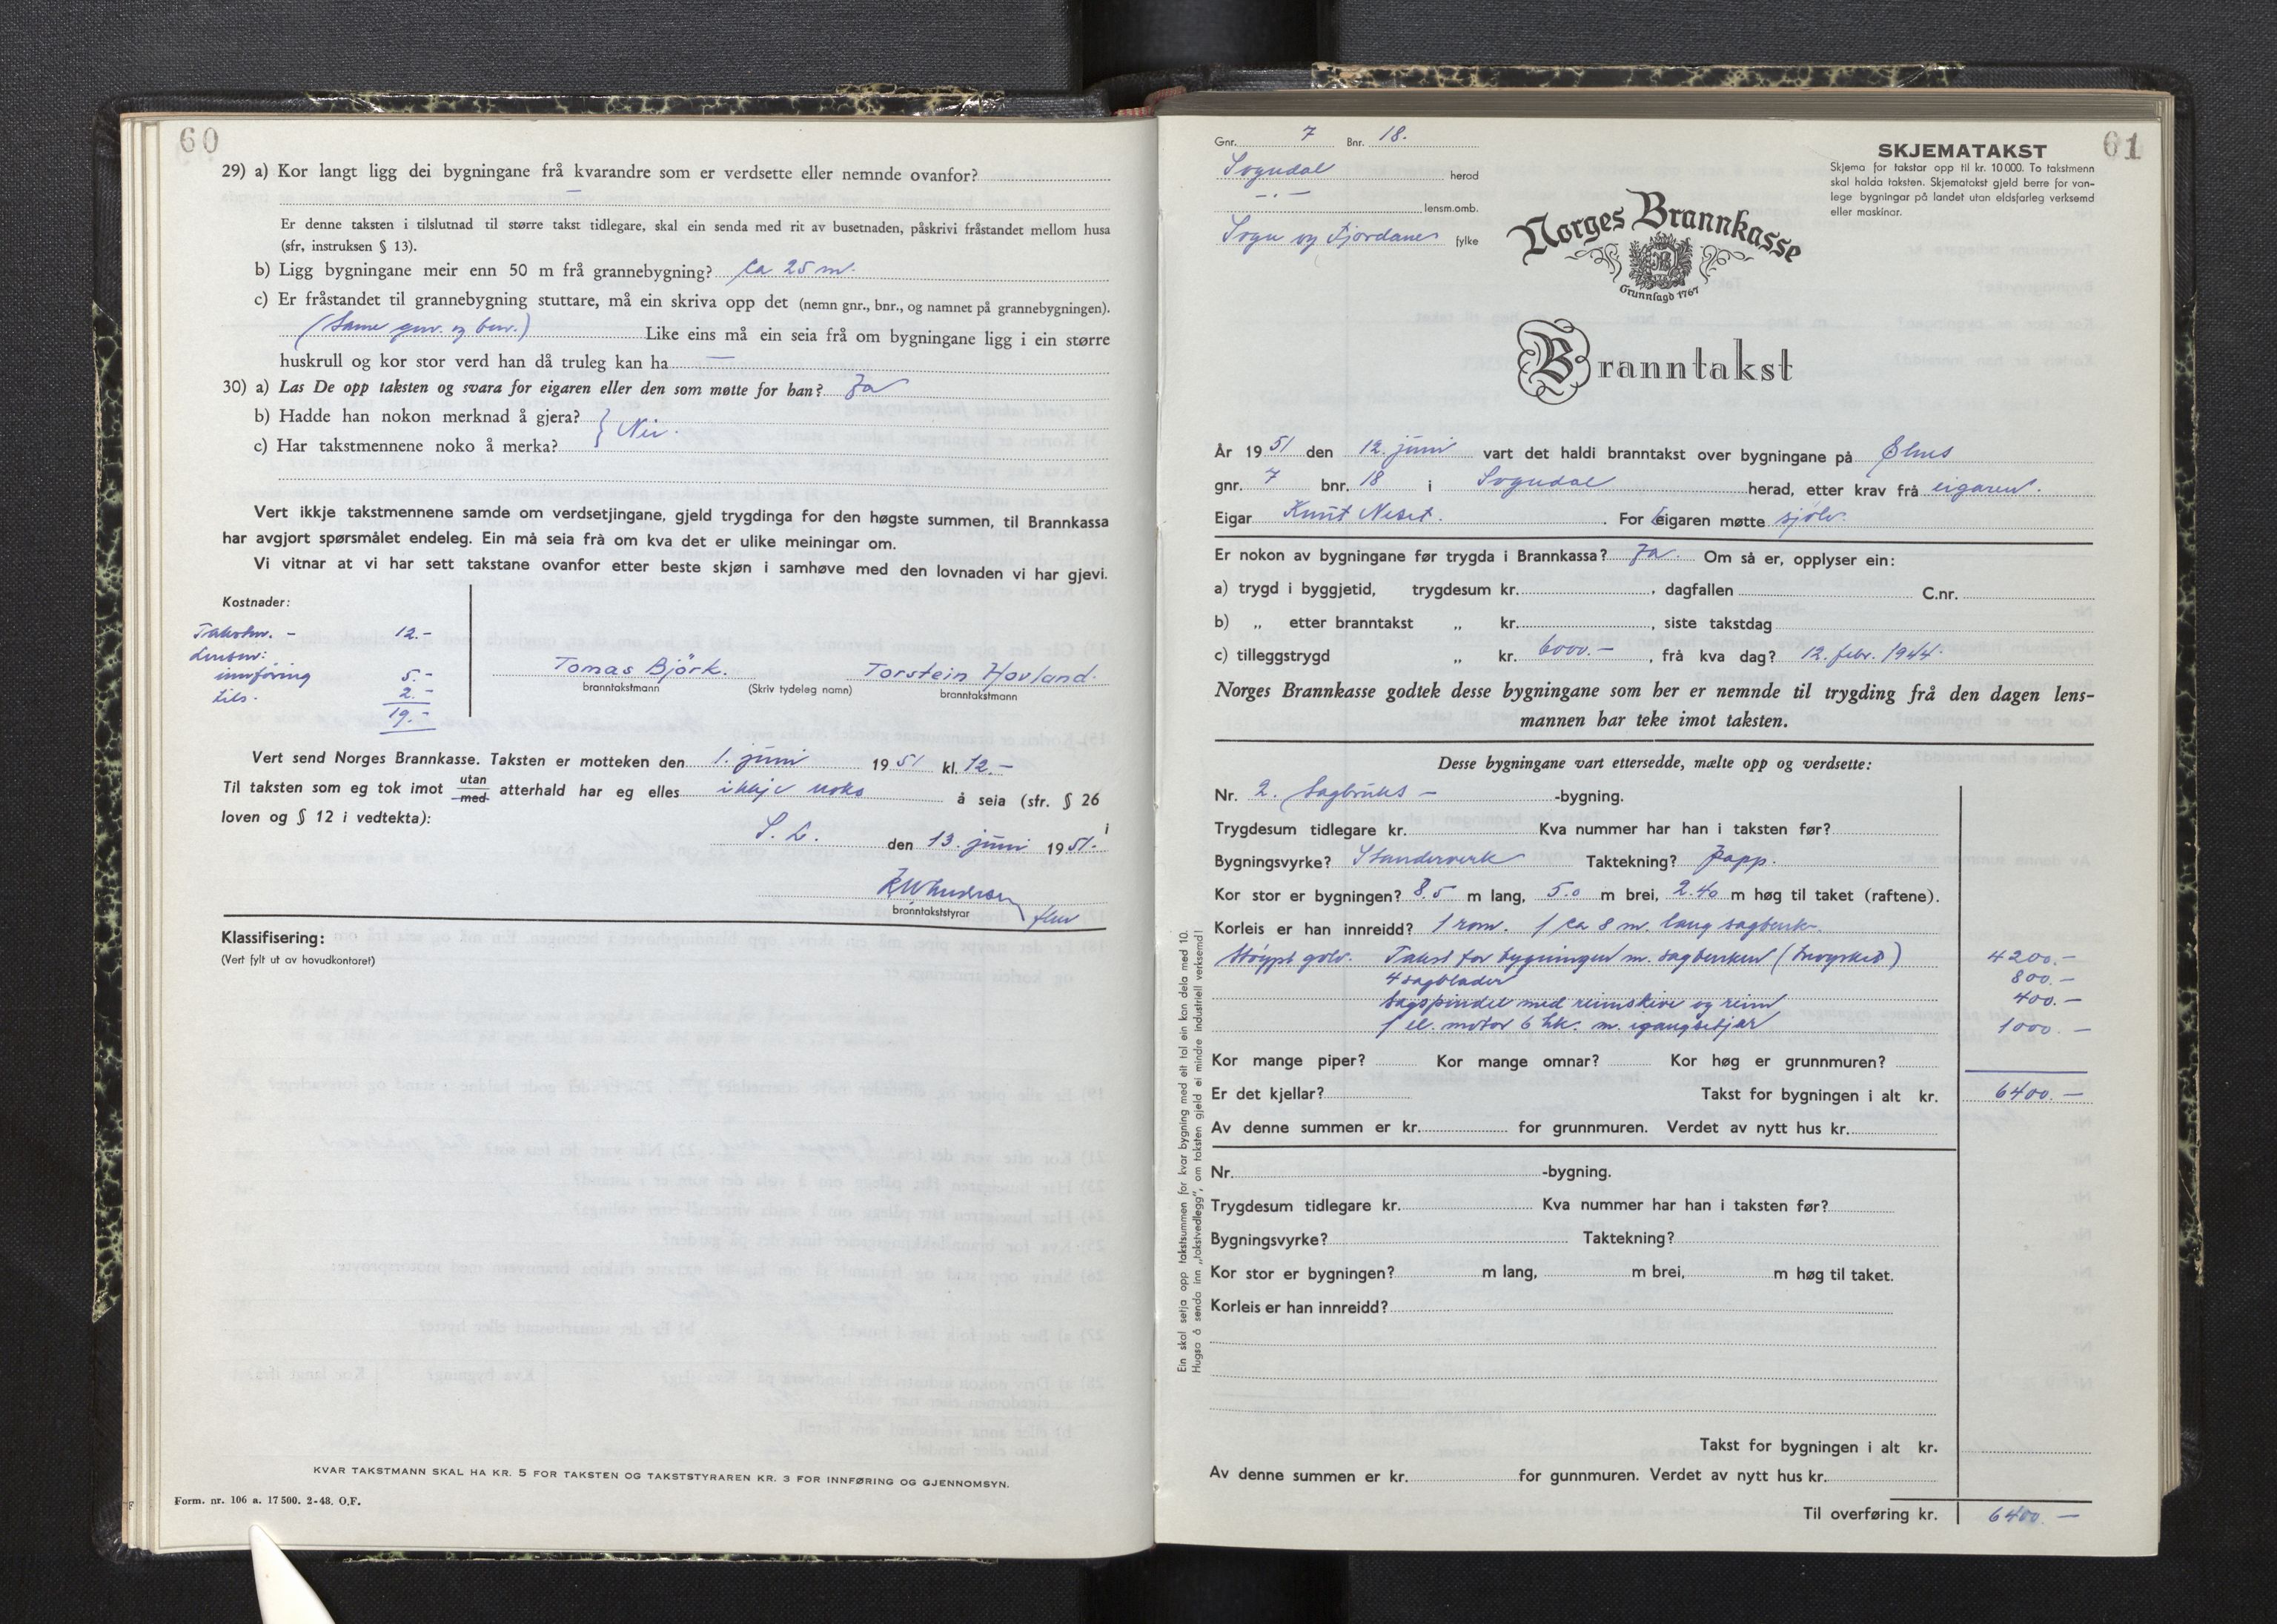 60
29) a) Kor langt ligg dei bygningane frå kvarandre som er verdsette eller nemnde ovanfor?
—
Er denne taksten i tilslutnad til større takst tidlegare, skal ein senda med rit av busetnaden, påskrivi fråstandet mellom husa
(sfr, instruksen § 13).
b) Ligg bygningane meir enn 50 m frå grannebygning? ca 25 m.
c) Er fråstandet til grannebygning stuttare, må ein skriva opp det (nemn gnr., bnr., og namnet på grannebygningen).
(Same gnr. og bnr.) Like eins må ein seia frå om bygningane ligg i ein større
huskrull og kor stor verd han då truleg kan ha —
30) a) Las De opp taksten og svara for eigaren eller den som møtte for han? Ja
b) Hadde han nokon merknad å gjera? } Nei.
c) Har takstmennene noko å merka?
Vert ikkje takstmennene samde om verdsetjingane, gjeld trygdinga for den høgste summen, til Brannkassa
har avgjort spørsmålet endeleg. Ein må seia frå om kva det er ulike meiningar om.
Vi vitnar at vi har sett takstane ovanfor etter beste skjøn i samhøve med den lovnaden vi har gjevi.
Kostnader:
Takstm. - 12.-
Lensm:
innföring 5.-
tils. 2.-
19.-
Tomas Björk. Torstein Hovland.
branntakstmann (Skriv tydeleg namn) branntakstmann
Vert send Norges Brannkasse. Taksten er motteken den 1. juni 1951 kl. 12.-
Til taksten som eg tok imot utan/med atterhald har eg elles ikkje noko å seia (sfr. § 26 i
loven og § 12 i vedtekta):
S. L. den 13. juni 1951.
branntakststyrar
Klassifisering:
(Vert fylt ut av hovudkontoret)
KVAR TAKSTMANN SKAL HA KR. 5 FOR TAKSTEN OG TAKSTSTYRAREN KR. 3 FOR INNFØRING OG GJENNOMSYN.
Form. nr. 106 a. 17 500. 2-48. O.F.
61
Gnr. 7 Bnr. 18.
Sogndal herad
- . - lensm.omb.
Sogn og Fjordane fylke
SKJEMATAKST
Skjema for takstar opp til kr. 10 000. To takstmenn
skal halda taksten. Skjematakst gjeld berre for van-
lege bygningar på landet utan eldsfarleg verksemd
eller maskinar.
Norges Brannkasse
Grunnlagd 1767
Branntakst
År 1951 den 12. juni vart det haldi branntakst over bygningane på
gnr. 7 bnr. 18 i Sogndal herad, etter krav frå eigaren.
Eigar Knut Neset. For eigaren møtte sjölv.
Er nokon av bygningane før trygda i Brannkassa? Ja. Om så er, opplyser ein:
a) trygd i byggjetid, trygdesum kr. , dagfallen C.nr.
b) „ etter branntakst „ kr. , siste takstdag
c) tilleggstrygd „ kr. 6000.- , frå kva dag? 12. febr. 1944.
Norges Brannkasse godtek desse bygningane som her er nemnde til trygding frå den dagen lens-
mannen har teke imot taksten.
Desse bygningane vart ettersedde, mælte opp og verdsette:
Nr. 2. Sagbruks - -bygning.
Trygdesum tidlegare kr. Kva nummer har han i taksten før?
Bygningsvyrke? Standerverk Taktekning? Papp.
Kor stor er bygningen? 8.5 m lang, 5.0 m brei, 2.40 m høg til taket (raftene).
Korleis er han innreidd? 1 rom. 1 ca 8 m. lang sagbenk.
Stöypt golv. Takst for bygningen m. sagbenken 4200.-
4 sagblader 800.-
Sagspindel med reimskive og reim 400.-
1 el. motor 6 hk. m. igangsetjar 1000.-
Kor mange piper? Kor mange omnar? Kor høg er grunnmuren?
Er det kjellar? Takst for bygningen i alt kr. 6400.-
Av denne summen er kr. for grunnmuren. Verdet av nytt hus kr.
Nr. -bygning.
Trygdesum tidlegare kr. Kva nummer har han i taksten før?
Bygningsvyrke? Taktekning?
Kor stor er bygningen? m lang, m brei, m høg til taket.
Korleis er han innreidd?
Takst for bygningen i alt kr.
Av denne summen er kr. for gunnmuren. Verdet av nytt hus kr.
Til overføring kr. 6400.-
Ein skal setja opp takstsummen for kvar bygning med eit tal ein kan dela med 10.
Hugso å senda inn „takstvedlegg", om taksten gjeld ei mindre industriell verksemd!